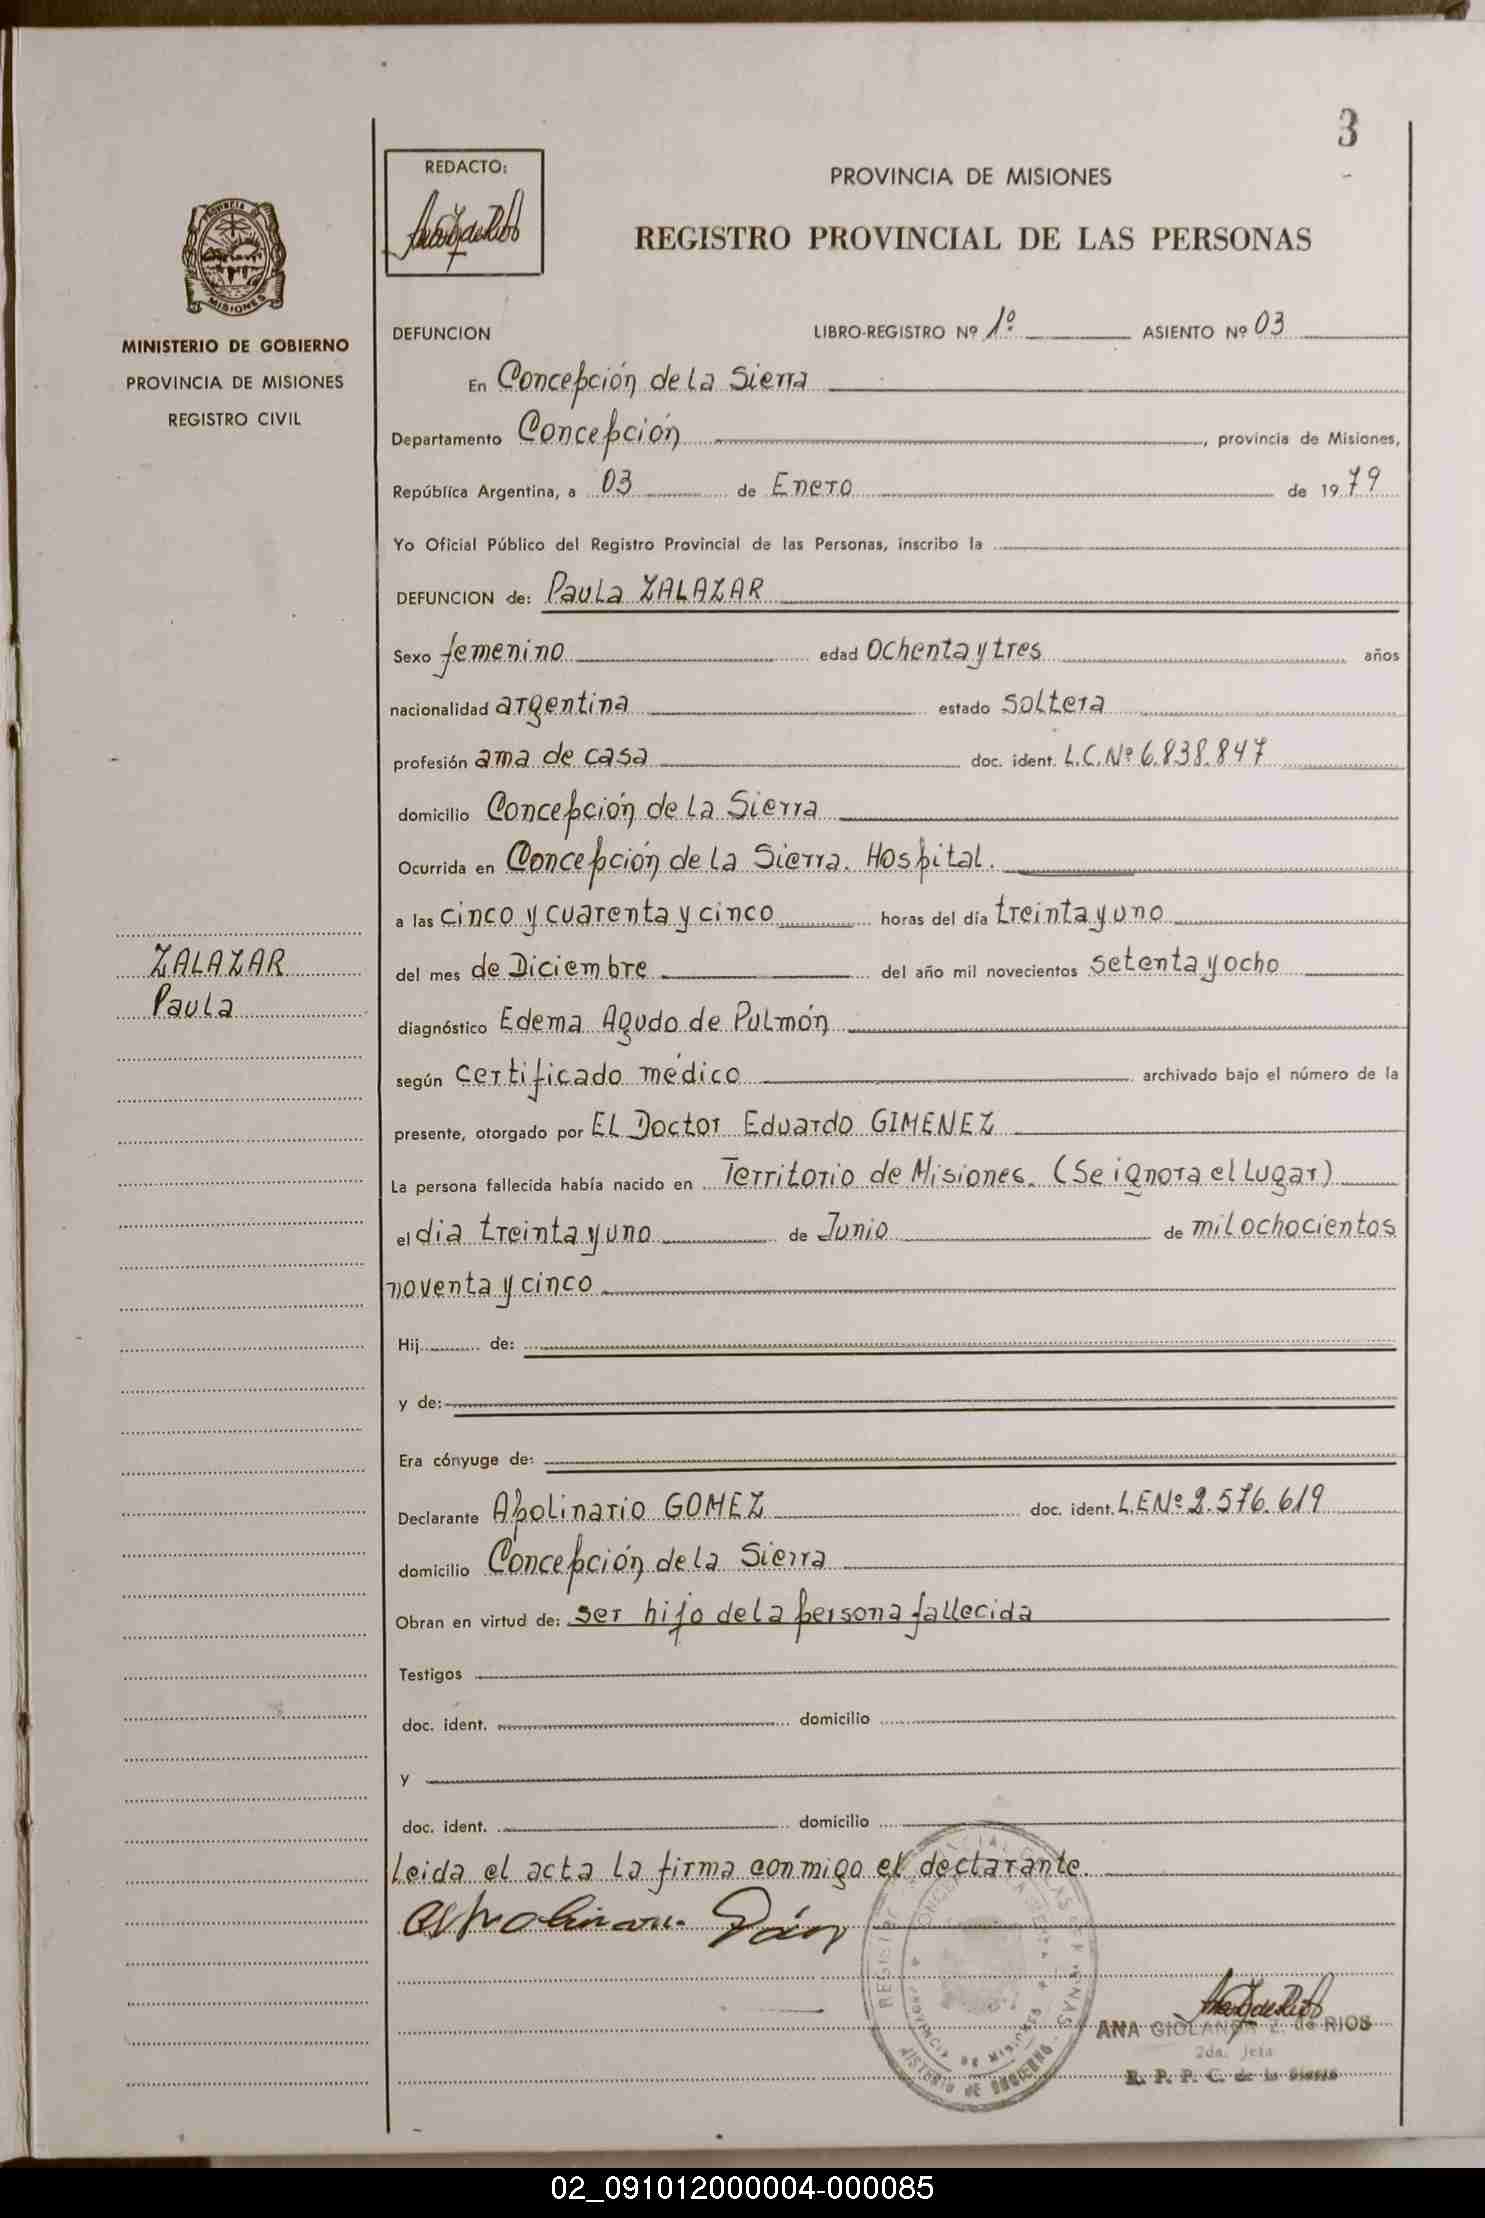 3
REDACTO:
PROVINCIA DE MISIONES
REGISTRO PROVINCIAL DE LAS PERSONAS
PROVINCIA DE
MISIONES
MINISTERIO DE GOBIERNO
PROVINCIA DE MISIONES
REGISTRO CIVIL
DEFUNCION LIBRO-REGISTRO Nº 1º ASIENTO Nº 03
En Concepción de La Sierra
Departamento Concepción, provincia de Misiones,
República Argentina, a 03 de Enero de 1979
Yo Oficial Público del Registro Provincial de las Personas, inscribo la
DEFUNCION de: Paula ZALAZAR
Sexo femenino edad ochenta y tres años
nacionalidad argentina estado soltera
profesión ama de casa doc. ident. L.C.Nº 6.838.847
domicilio Concepción de La Sierra
Ocurrida en Concepción de La Sierra. Hospital.
a las cinco y cuarenta y cinco horas del día treinta y uno
ZALAZAR
Paula
del mes de Diciembre del año mil novecientos setenta y ocho
diagnóstico Edema Agudo de Pulmón
según certificado médico archivado bajo el número de la
presente, otorgado por EL Doctor Eduardo GIMENEZ
La persona fallecida había nacido en Territorio de Misiones. (Se ignora el Lugar)
el dia treinta y uno de Junio de mil ochocientos
noventa y cinco
Hij de:
y de:
Era cónyuge de:
Declarante Apolinario GOMEZ doc. ident. L.E.Nº 2.576.619
domicilio Concepción de la Sierra
Obran en virtud de: ser hijo de la persona fallecida
Testigos
doc. ident. domicilio
y
doc. ident. domicilio
Leida el acta la firma conmigo el declarante.
ANA Z. de RIOS
2da. Jefa
R. P. P. C. de la Sierra
02_091012000004-000085